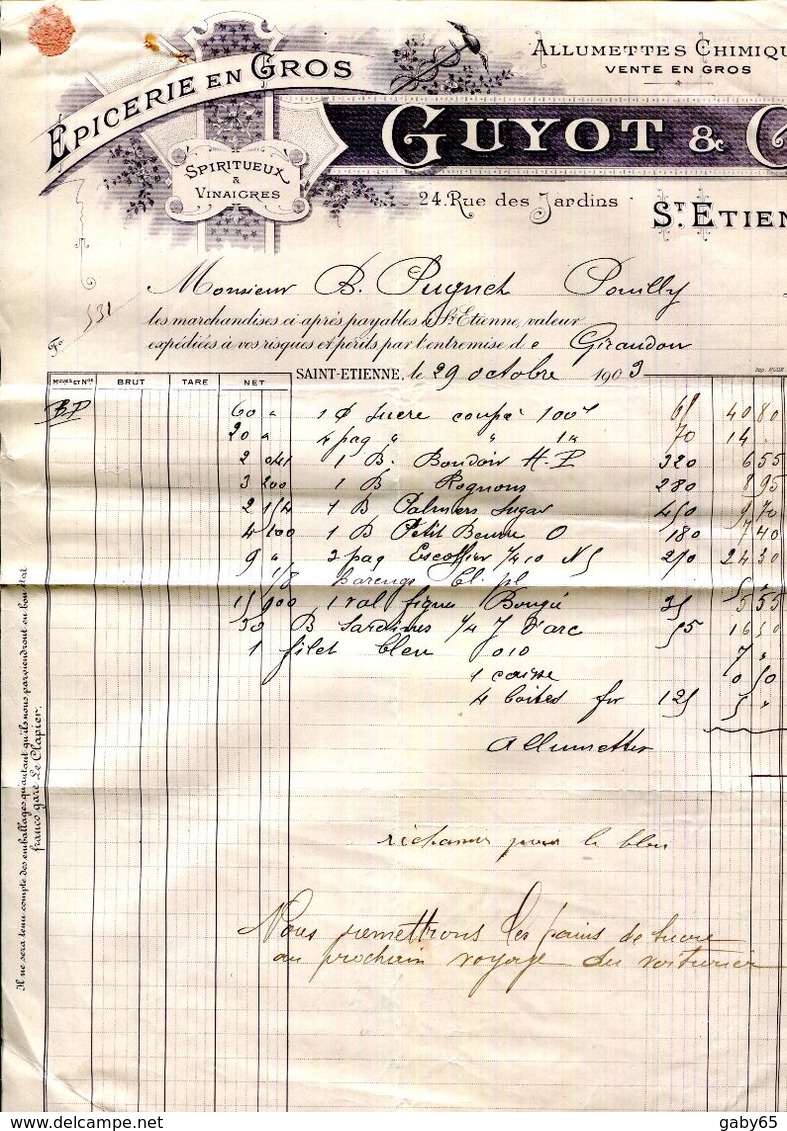 ÉPICERIE EN GROS
ALLUMETTES CHIMIQU
VENTE EN GROS
GUYOT & C
SPIRITUEUX
&
VINAIGRES
24. Rue des Jardins
ST. ETIEN
Monsieur B. Pugnet Pouilly
Fo 531
les marchandises ci-après payables à St Etienne, valeur
expédiées à vos risques et périls par l'entremise de Giraudon
SAINT-ETIENNE, le 29 octobre 1903
MQUES ET Nos BRUT TARE NET
BP 60 " 1 sucre coupé 100 68 40 80
20 " 4 paq " " 1 70 14 .
2 041 1 B. Boudoir H.P 320 6 55
3 200 1 B Rognons 280 8 95
2 154 1 B Palmers Sugar 450 9 70
4 100 1 B Petit Beurre O 180 7 40
9 " 2 paq Escoffier 1/4 10 NS 270 24 30
1/8 harengs bl. pl 5 "
15 900 1 val figue Bougie 35 5 55
30 B Sardines 1/4 J D'arc 55 16 50
1 filet bleu 010 7 "
1 caisse 0 50
4 boites fer 125 5 "
Allumettes
pour le bleu
Nous remettrons les pains de sucre
au prochain voyage du voiturier
Il ne sera tenu compte des emballages qu'autant qu'ils nous parviendront en bon état
franco gare Le Clapier.
delcampe.net
gaby65